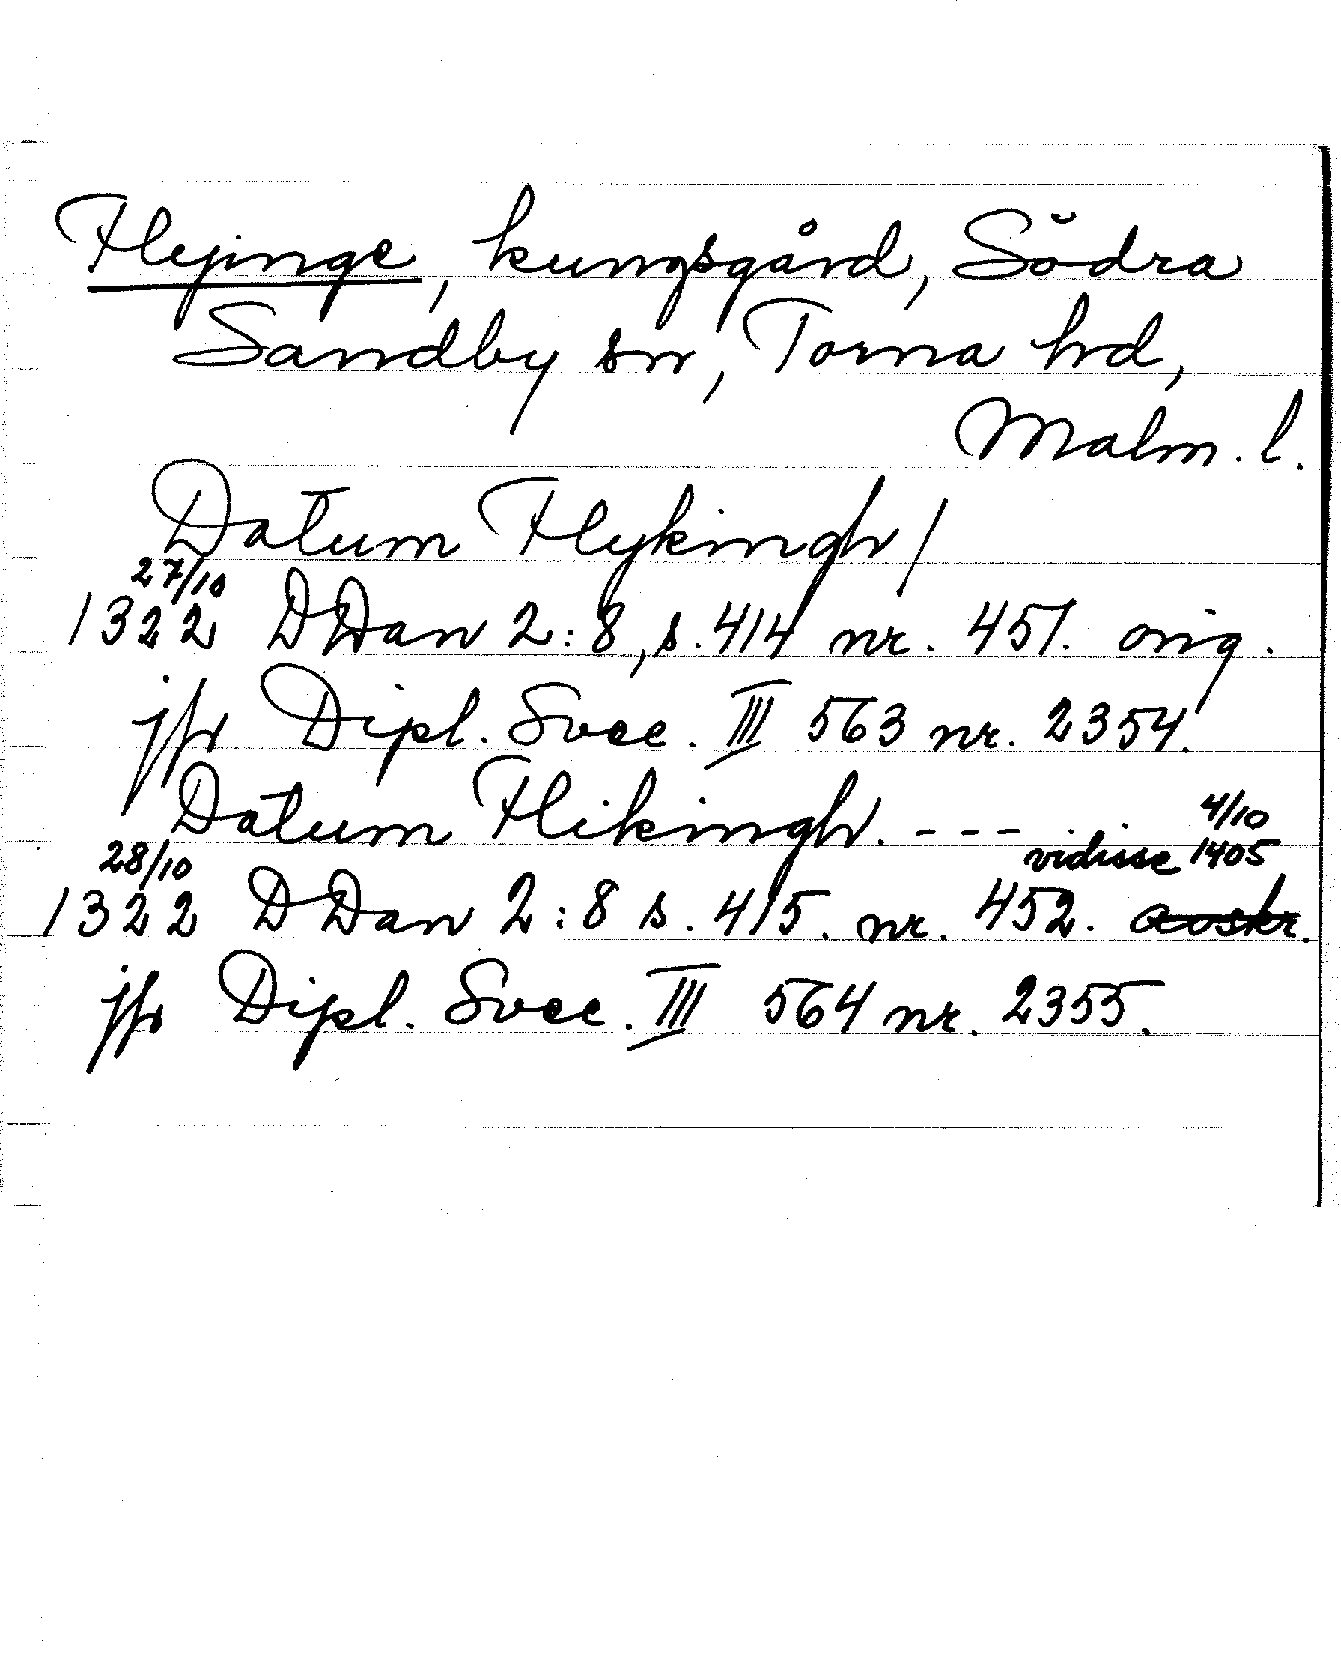 Flyinge, kungsgård, Södra
Sandby sn, Torna hd,
Malm. l.
Datum Flykingh/
27/10
1322 DDan 2:8, s. 414 nr. 451. orig.
jfr Dipl. Svec. III 563 nr. 2354.
Datum Flikingh. - - -
28/10 vidisse 4/10 1405
1322 DDan 2:8 s. 415. nr. 452. avskr.
jfr Dipl. Svec. III 564 nr. 2355.